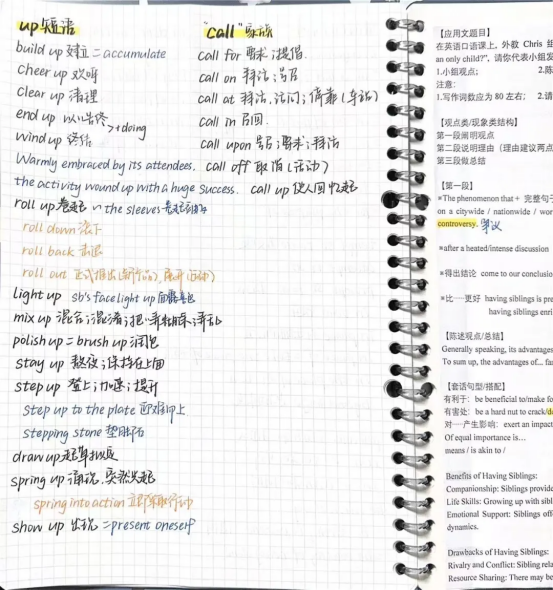 up 短语
build up 建立 = accumulate
cheer up 欢呼
clear up 清理
end up 以…告终
wind up 终结
>+doing
Warmly embraced by its attendees.
the activity wound up with a huge success.
roll up 卷起 ~ the sleeves
roll down 滚下
roll back 击退
roll out 正式推出(新产品),展开(活动)
light up sb's face light up 面露喜色
mix up 混合;混淆;把…弄糊涂;弄乱
polish up = brush up 润色
stay up 熬夜;保持在上面
step up 登上;加速;提升
step up to the plate 迎难而上
stepping stone 垫脚石
draw up 起草
spring up 涌现,突然兴起
spring into action 立即采取行动
show up 出现 = present oneself
"call" 家族
call for 要求;提倡
call on 拜访;号召
call at 拜访,访问;停靠(车站)
call in 召回
call upon 号召;要求;拜访
call off 取消(活动)
call up 使人回忆起
【应用文题目】
在英语口语课上,外教 Chris 组
an only child?", 请你代表小组发
1.小组观点; 2.陈
注意:
1.写作词数应为 80 左右; 2.请
【观点类/现象类结构】
第一段阐明观点
第二段说明理由(理由建议两点
第三段做总结
【第一段】
*The phenomenon that + 完整句子
on a citywide / nationwide / wor
controversy. 争议
*after a heated/intense discussion
*得出结论 come to our conclusion
*比…更好 having siblings is pre
having siblings enri
【陈述观点/总结】
Generally speaking, its advantages
To sum up, the advantages of... far
【套话句型/搭配】
有利于: be beneficial to/make fo
有害处: be a hard nut to crack/d
对…产生影响: exert an impact
Of equal importance is…
means / is akin to /
Benefits of Having Siblings:
Companionship: Siblings provide
Life Skills: Growing up with sibl
Emotional Support: Siblings off
dynamics.
Drawbacks of Having Siblings:
Rivalry and Conflict: Sibling rela
Resource Sharing: There may be